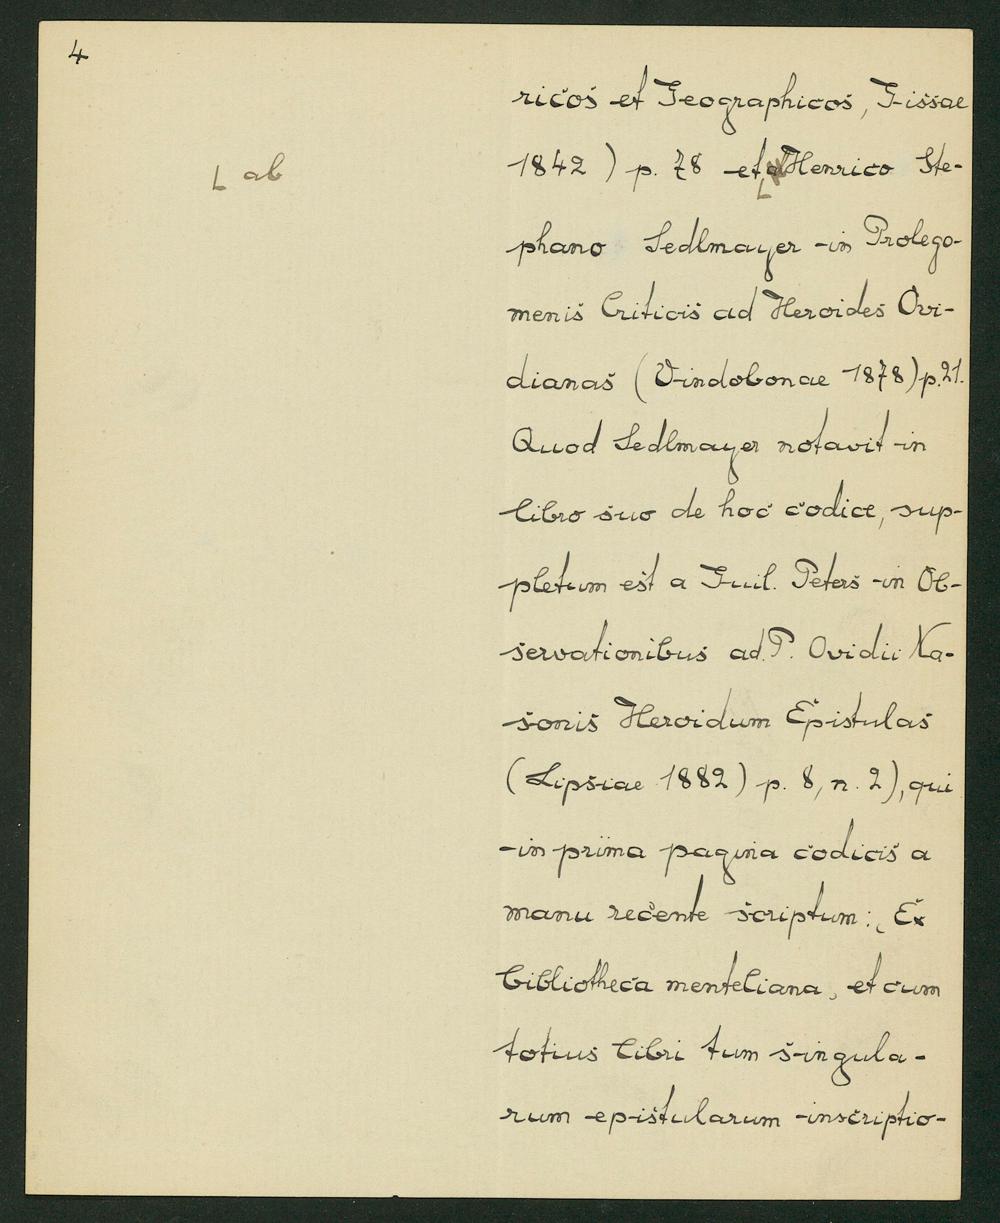 4
ricos et Geographicos, Gissae
1842) p. 78 et a Henrico Ste-
ab
phano Sedlmayer in Prolego-
menis Criticis ad Heroides Ovi-
dianas (Vindobonae 1878) p. 21.
Quod Sedlmayer notavit in
libro suo de hoc codice, sup-
pletum est a Guil. Peters in Ob-
servationibus ad. P. Ovidii Na-
sonis Heroidum Epistulas
(Lipsiae 1882) p. 8, n. 2), qui
in prima pagina codicis a
manu recente scriptum: „Ex
bibliotheca menteliana, et cum
totius libri tum singula-
rum epistularum inscriptio-